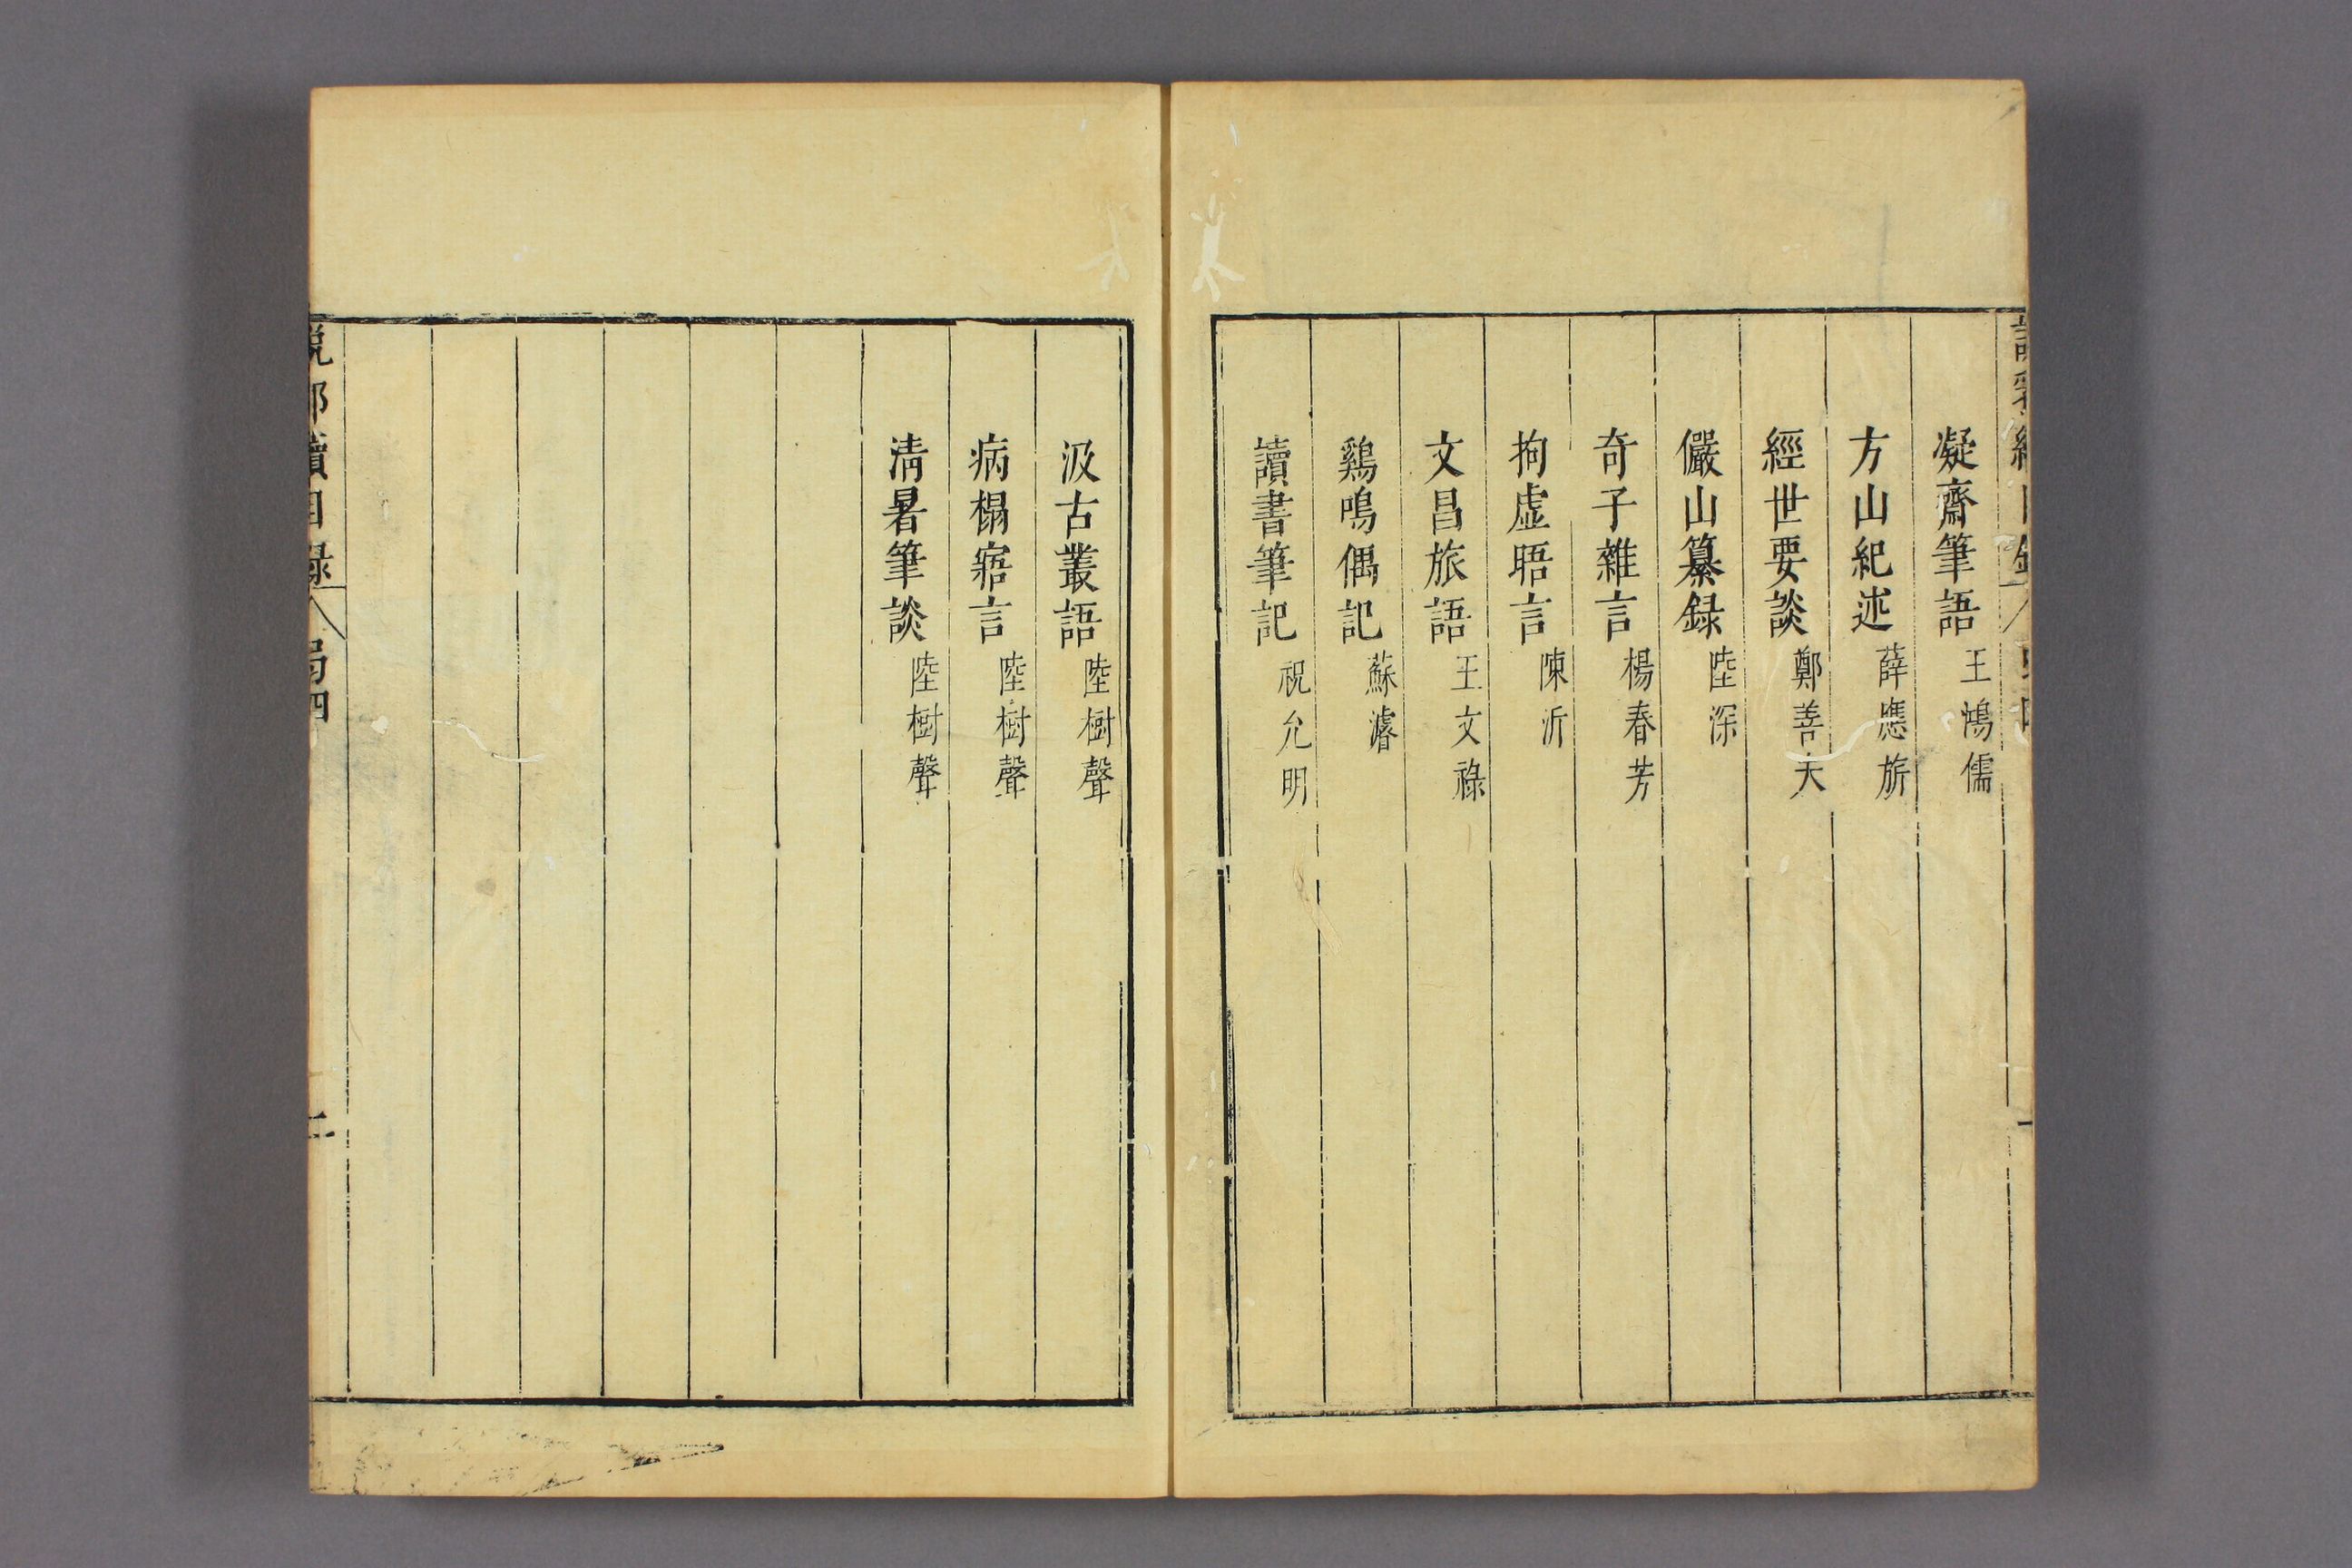 凝齋筆語 王鴻儒
方山紀述 薛應旂
經世要談 鄭善夫
儼山纂録 陸深
奇子雜言 楊春芳
拘虛晤言 陳沂
文昌旅語 王文祿
鷄鳴偶記 蘇濬
讀書筆記 祝允明
汲古叢語 陸樹聲
病榻寤言 陸樹聲
清暑筆談 陸樹聲
說郛續目録 㢧四 二